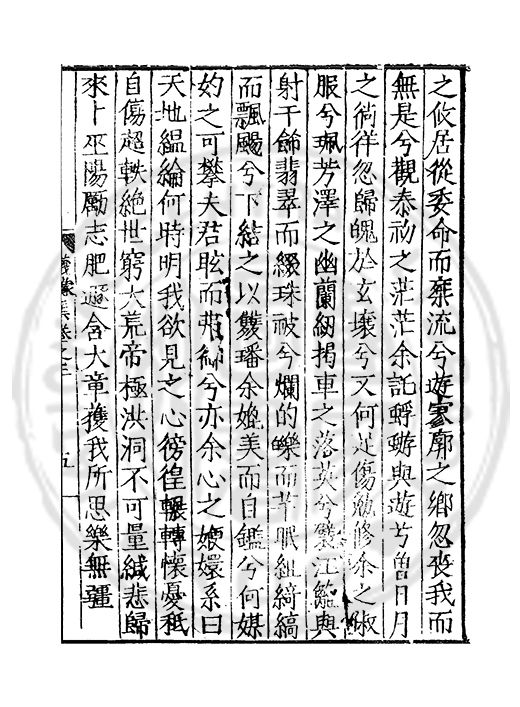 之攸居從委命而乘流兮遊寥廓之鄉忽喪我而
無是兮觀泰初之茫茫余託蜉蝣與遊兮曾日月
之徜徉忽歸魄於玄壤兮又何足傷勉脩余之俶
服兮珮芳澤之幽蘭紉揭車之落英兮襲江蘺與
射干餙翡翠而綴珠祓兮爛的皪而芊眠組綺縞
而飄颺兮下結之以璵璠余媲美而自鑑兮何媒
妁之可攀夫君眩而弗御兮亦余心之嬽嬛系曰
天地縕綸何時明我欲見之心徬徨輾轉懷憂秪
自傷超軼絕世窮大荒帝極洪洞不可量緘悲歸
來卜巫陽勵志肥遯含大章獲我所思樂無疆
集卷之三
五